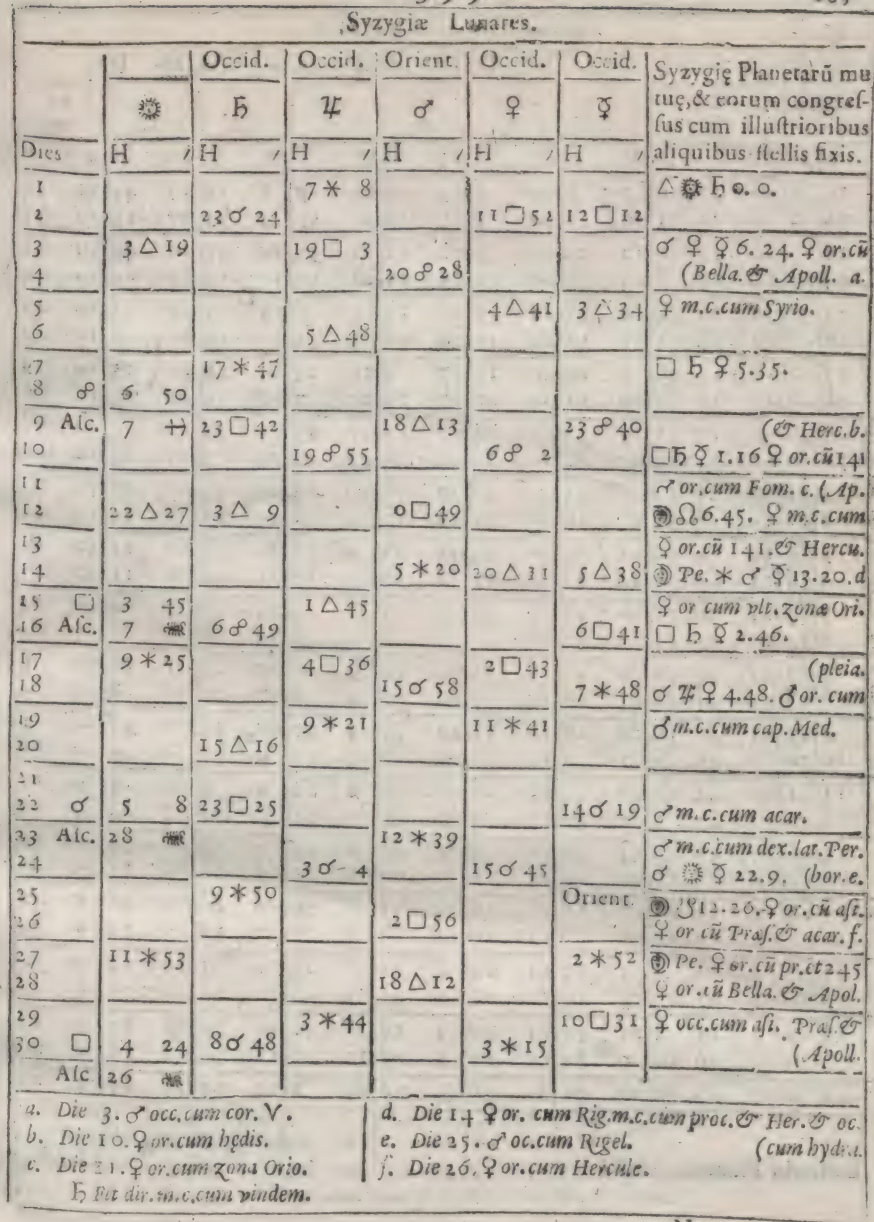 Syzygiæ Lunares.
Occid. Occid. Orient. Occid. Occid. Syzygię Planetarū mu
☉ ♄ ♃ ♂ ♀ ☿ tuę, & eorum congres-
sus cum illustrioribus
Dies H ′ H ′ H ′ H ′ H ′ H ′ aliquibus stellis fixis.
1 7 ⚹ 8 △ ☉ ♄ 0. 0.
2 23 ☌ 24 11 □ 52 12 □ 12
3 3 △ 19 19 □ 3 ☌ ♀ ☿ 6. 24. ♀ or.cū
4 20 ☍ 28 (Bella. & Apoll. a.
5 4 △ 41 3 △ 34 ♀ m.c.cum Syrio.
6 5 △ 48
7 17 ⚹ 47 □ ♄ ♀ 5.35.
8 ☍ 6 50
9 Asc. 7 ♓ 23 □ 42 18 △ 13 23 ☍ 40 (& Herc.b.
10 19 ☍ 55 6 ☍ 2 □ ♄ ☿ 1.16 ♀ or.cū 141
11 ♂ or.cum Fom. c. (Ap.
12 22 △ 27 3 △ 9 0 □ 49 ☊ 6.45. ♀ m.c.cum
13 ☿ or.cū 141.& Hercu.
14 5 ⚹ 20 20 △ 31 5 △ 38 Pe. ⚹ ♂ ☿ 13.20.d
15 □ 3 45 1 △ 45 ♀ or cum vlt.zonæ Ori.
16 Asc. 7 ♒ 6 ☍ 49 6 □ 41 □ ♄ ☿ 2.46.
17 9 ⚹ 25 4 □ 36 2 □ 43 (pleia.
18 15 ☌ 58 7 ⚹ 48 ☌ ♃ ♀ 4.48. ♂ or. cum
19 9 ⚹ 21 11 ⚹ 41 ♂ m.c.cum cap.Med.
20 15 △ 16
21
22 ☌ 5 8 23 □ 25 14 ☌ 19 ♂ m.c.cum acar.
23 Asc. 28 ♒ 12 ⚹ 39 ♂ m.c.cum dex.lat.Per.
24 3 ☌ 4 15 ☌ 45 ☌ ☉ ☿ 22.9. (bor.e.
25 9 ⚹ 50 Orient. 12.26. ♀ or.cū asi.
26 2 □ 56 ♀ or cū Præs.& acar.f.
27 11 ⚹ 53 2 ⚹ 52 Pe. ♀ or.cū pr.et 245
28 18 △ 12 ♀ or.cū Bella. & Apol.
29 3 ⚹ 44 10 □ 31 ♀ occ.cum asi. Præs.&
30 □ 4 24 8 ☌ 48 3 ⚹ 15 (Apoll.
Asc 26 ♒
a. Die 3. ♂ occ.cum cor. ♈.
b. Die 10. ♀ or.cum hędis.
c. Die 11. ♀ or.cum zona Orio.
♄ Fit dir.m.c.cum vindem.
d. Die 14 ♀ or. cum Rig.m.c.cum proc.& Her.& oc.
e. Die 25. ♂ oc.cum Rigel. (cum hydra.
f. Die 26. ♀ or.cum Hercule.